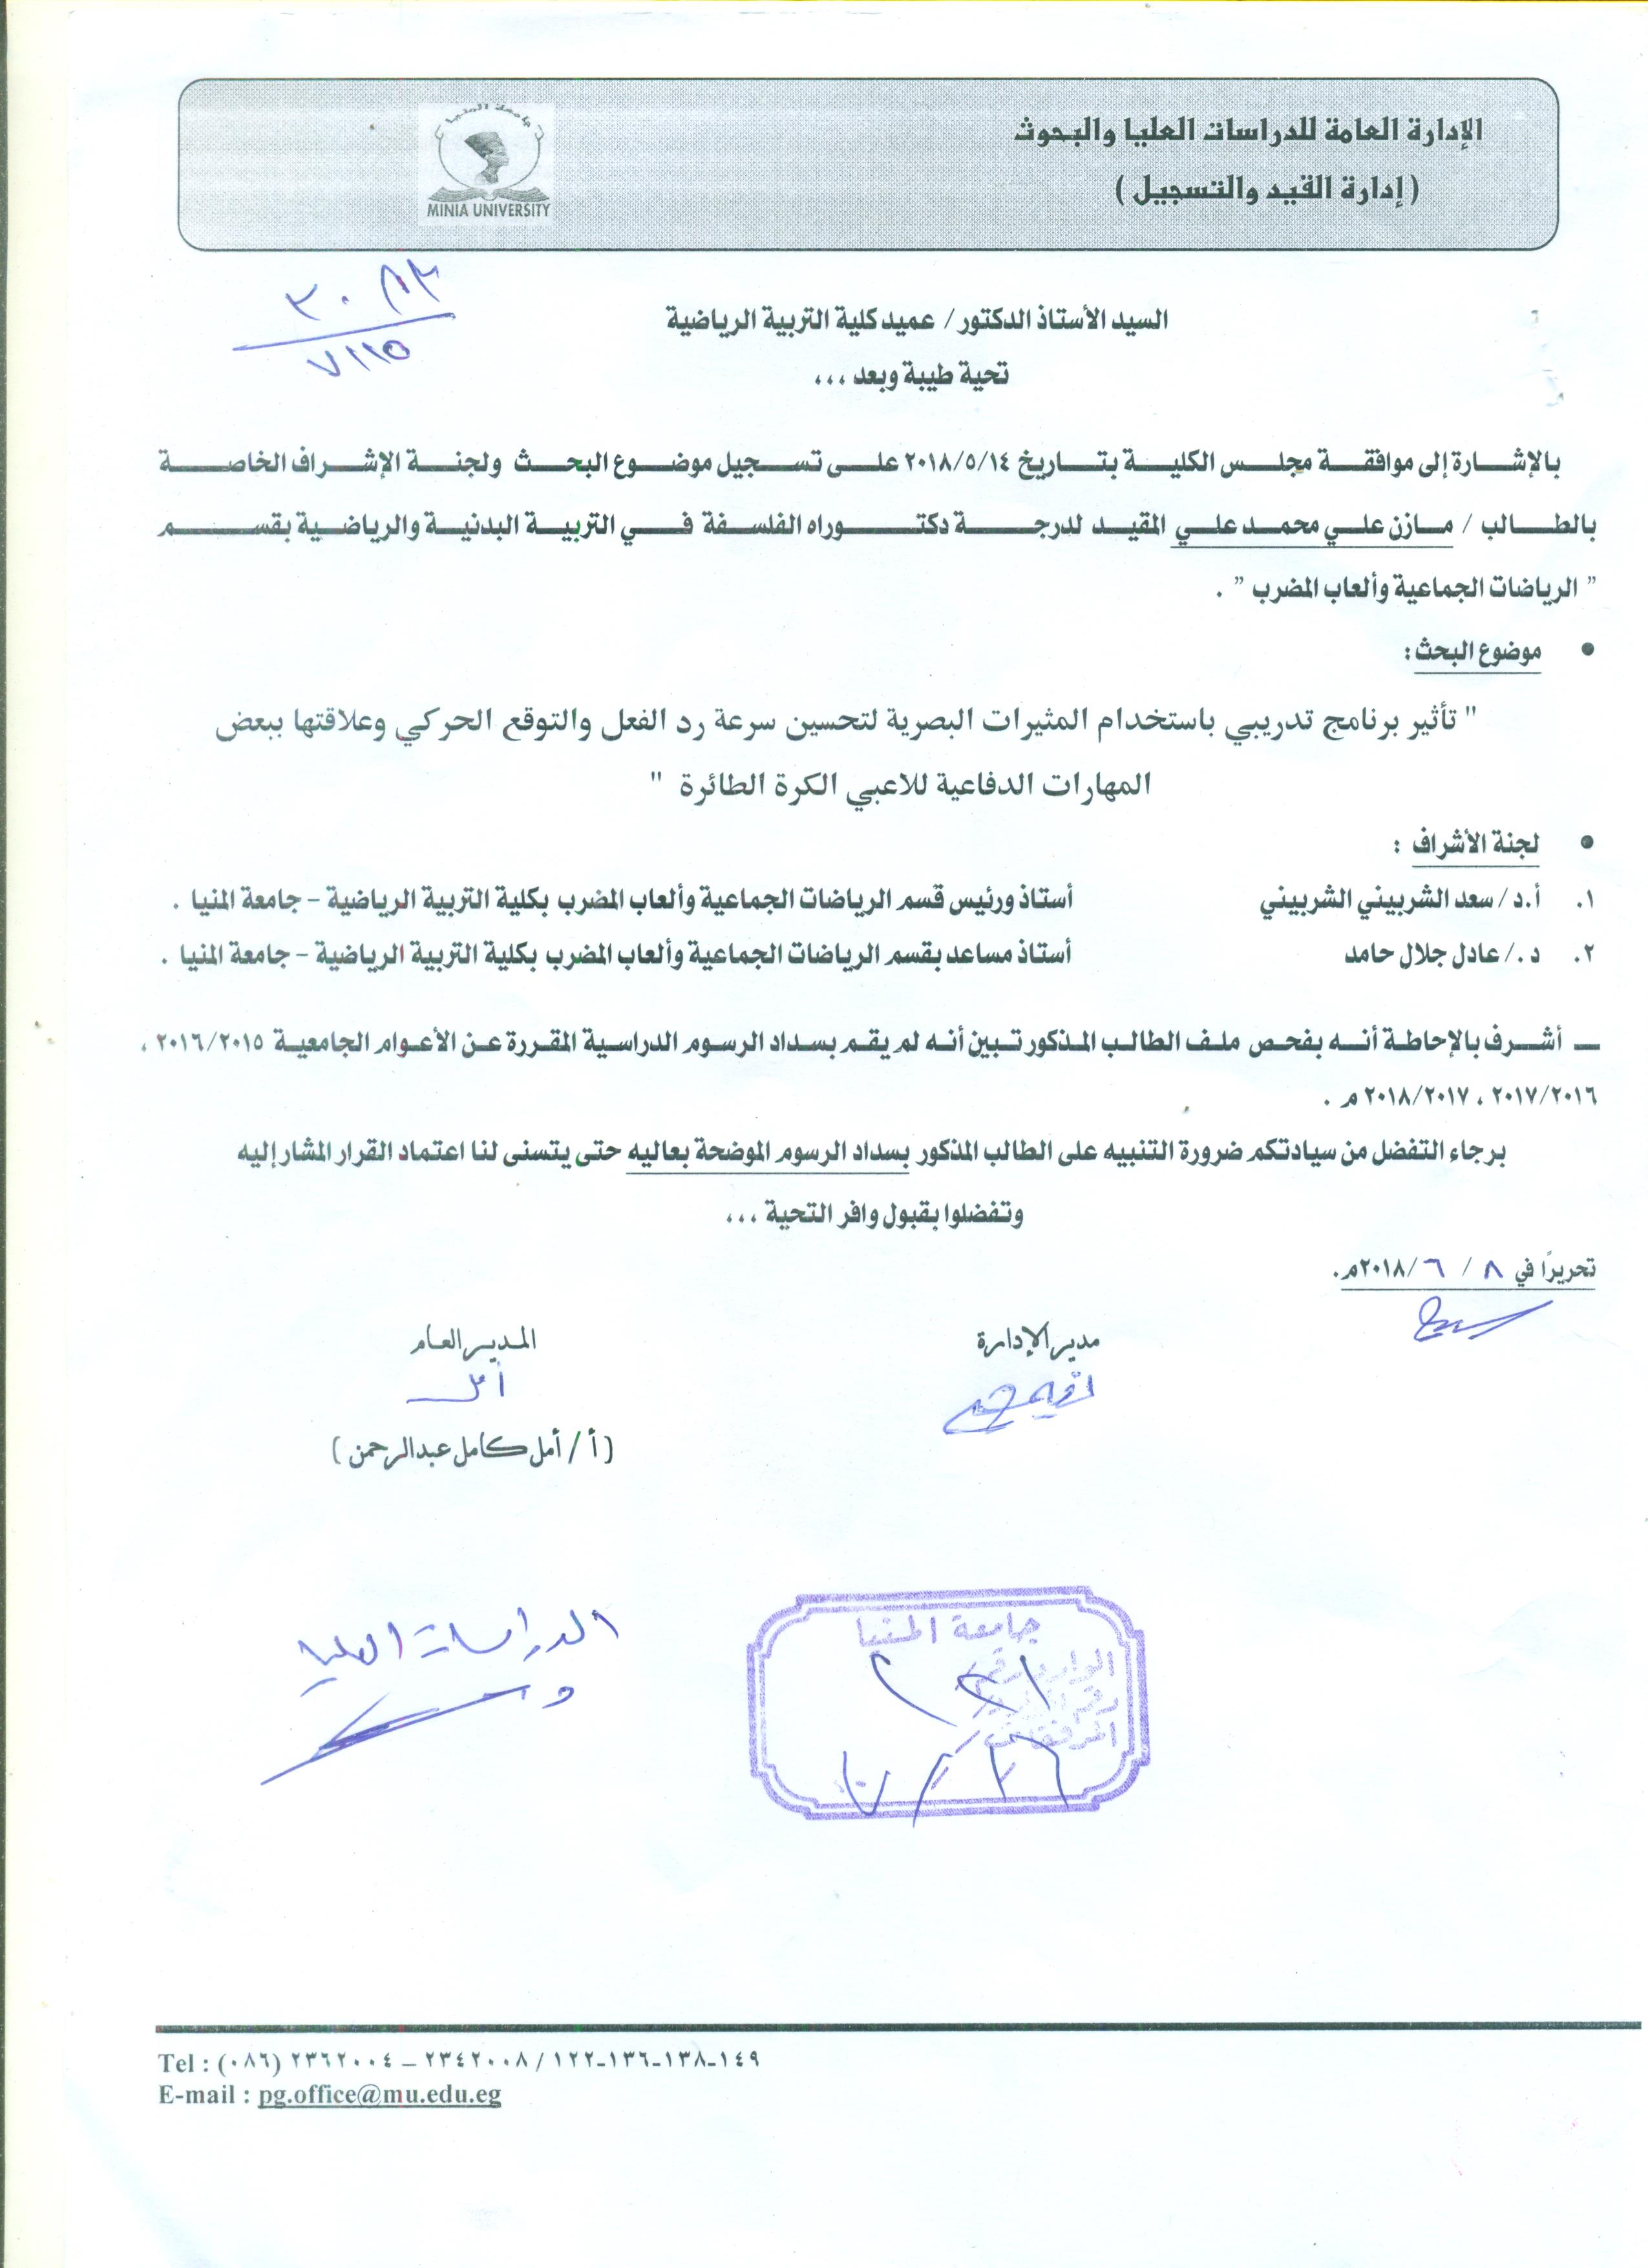 الإدارة العامة للدراسات العليا والبحوث
( إدارة القيد والتسجيل )
جامعة المنيا
MINIA UNIVERSITY
السيد الأستاذ الدكتور / عميد كلية التربية الرياضية
تحية طيبة وبعد ...
بالإشارة إلى موافقة مجلس الكلية بتاريخ ٢٠١٨/٥/١٤ على تسجيل موضوع البحث ولجنة الإشراف الخاصة
بالطالب / مازن علي محمد علي المقيد لدرجة دكتوراه الفلسفة في التربية البدنية والرياضية بقسم
" الرياضات الجماعية وألعاب المضرب " .
• موضوع البحث :
" تأثير برنامج تدريبي باستخدام المثيرات البصرية لتحسين سرعة رد الفعل والتوقع الحركي وعلاقتها ببعض
المهارات الدفاعية للاعبي الكرة الطائرة "
• لجنة الأشراف :
١. أ.د / سعد الشربيني الشربيني أستاذ ورئيس قسم الرياضات الجماعية وألعاب المضرب بكلية التربية الرياضية – جامعة المنيا .
٢. د ./ عادل جلال حامد أستاذ مساعد بقسم الرياضات الجماعية وألعاب المضرب بكلية التربية الرياضية – جامعة المنيا .
ــ أشرف بالإحاطة أنه بفحص ملف الطالب المذكور تبين أنه لم يقم بسداد الرسوم الدراسية المقررة عن الأعوام الجامعية ٢٠١٦/٢٠١٥ ،
٢٠١٧/٢٠١٦ ، ٢٠١٨/٢٠١٧ م .
برجاء التفضل من سيادتكم ضرورة التنبيه على الطالب المذكور بسداد الرسوم الموضحة بعاليه حتى يتسنى لنا اعتماد القرار المشار إليه
وتفضلوا بقبول وافر التحية ...
تحريرًا في ٨ / ٦ /٢٠١٨م.
مدير الإدارة
المدير العام
أمل
( أ / أمل كامل عبدالرحمن )
الدراسات العليا
جامعة المنيا
Tel : (٠٨٦) ٢٣٦٢٠٠٤ – ٢٣٤٢٠٠٨ / ١٢٢-١٣٦-١٣٨-١٤٩
E-mail : pg.office@mu.edu.eg